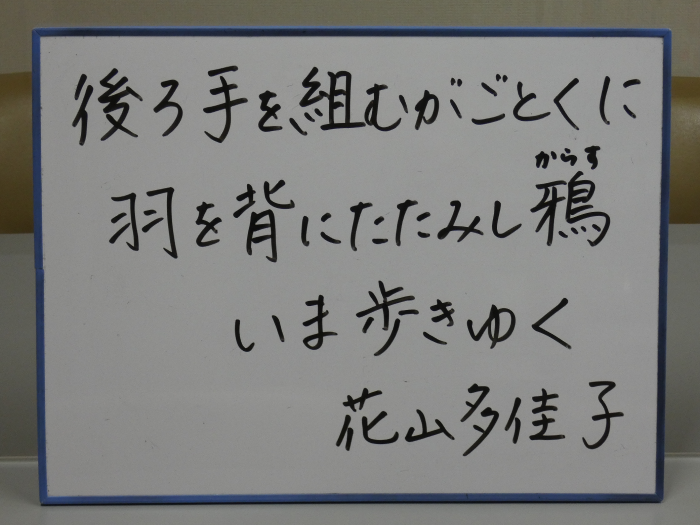 後ろ手を組むがごとくに
からす
羽を背にたたみし鴉
いま歩きゆく
花山多佳子